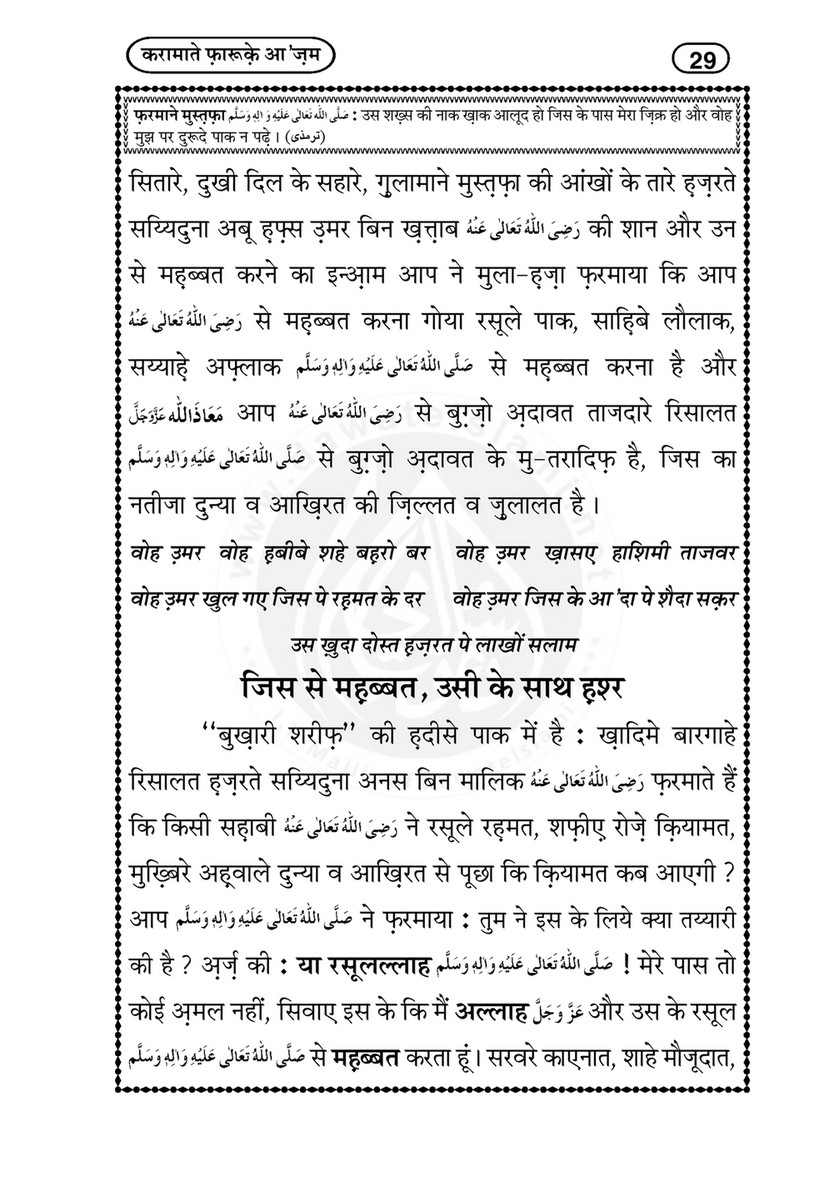 करामाते फ़ारूक़े आ 'ज़म
29
फ़रमाने मुस्त़फ़ा صَلَّى اللهُ تَعَالٰى عَلَيْهِ وَاٰلِهٖ وَسَلَّم : उस शख़्स की नाक ख़ाक आलूद हो जिस के पास मेरा ज़िक्र हो और वोह
मुझ पर दुरूदे पाक न पढ़े । (ترمذی)
सितारे, दुखी दिल के सहारे, ग़ुलामाने मुस्त़फ़ा की आंखों के तारे ह़ज़रते
सय्यिदुना अबू ह़फ़्स उ़मर बिन ख़त़्त़ाब رَضِىَ اللهُ تَعَالٰى عَنْهُ की शान और उन
से मह़ब्बत करने का इन्आ़म आप ने मुला-ह़ज़ा फ़रमाया कि आप
رَضِىَ اللهُ تَعَالٰى عَنْهُ से मह़ब्बत करना गोया रसूले पाक, साह़िबे लौलाक,
सय्याह़े अफ़्लाक صَلَّى اللهُ تَعَالٰى عَلَيْهِ وَاٰلِهٖ وَسَلَّم से मह़ब्बत करना है और
مَعَاذَاللّٰه عَزَّوَجَلَّ आप رَضِىَ اللهُ تَعَالٰى عَنْهُ से बुग़्ज़ो अ़दावत ताजदारे रिसालत
صَلَّى اللهُ تَعَالٰى عَلَيْهِ وَاٰلِهٖ وَسَلَّم से बुग़्ज़ो अ़दावत के मु-तरादिफ़ है, जिस का
नतीजा दुन्या व आख़िरत की ज़िल्लत व ज़ुलालत है ।
वोह उ़मर वोह ह़बीबे शहे बह़रो बर वोह उ़मर ख़ासए हाशिमी ताजवर
वोह उ़मर खुल गए जिस पे रह़मत के दर वोह उ़मर जिस के आ 'दा पे शैदा सक़र
उस ख़ुदा दोस्त ह़ज़रत पे लाखों सलाम
जिस से मह़ब्बत, उसी के साथ ह़श्र
‘‘बुख़ारी शरीफ़’’ की ह़दीसे पाक में है : ख़ादिमे बारगाहे
रिसालत ह़ज़रते सय्यिदुना अनस बिन मालिक رَضِىَ اللهُ تَعَالٰى عَنْهُ फ़रमाते हैं
कि किसी सह़ाबी رَضِىَ اللهُ تَعَالٰى عَنْهُ ने रसूले रह़मत, शफ़ीए रोज़े क़ियामत,
मुख़्बिरे अह़्वाले दुन्या व आख़िरत से पूछा कि क़ियामत कब आएगी ?
आप صَلَّى اللهُ تَعَالٰى عَلَيْهِ وَاٰلِهٖ وَسَلَّم ने फ़रमाया : तुम ने इस के लिये क्या तय्यारी
की है ? अ़र्ज़ की : या रसूलल्लाह صَلَّى اللهُ تَعَالٰى عَلَيْهِ وَاٰلِهٖ وَسَلَّم ! मेरे पास तो
कोई अ़मल नहीं, सिवाए इस के कि मैं अल्लाह عَزَّ وَجَلَّ और उस के रसूल
صَلَّى اللهُ تَعَالٰى عَلَيْهِ وَاٰلِهٖ وَسَلَّم से मह़ब्बत करता हूं। सरवरे काएनात, शाहे मौजूदात,